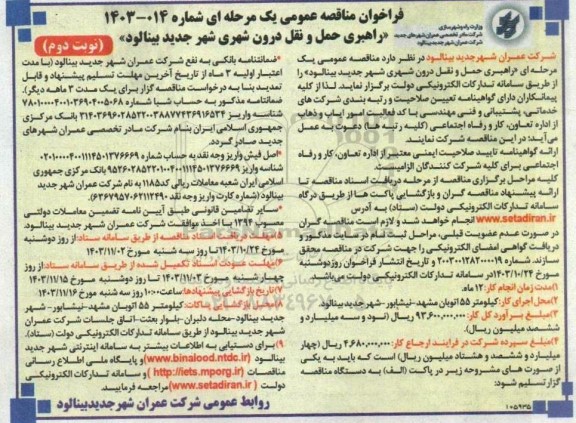 فراخوان مناقصه عمومی یک مرحله ای شماره ۰۱۴-۱۴۰۳
«راهبری حمل و نقل درون شهری شهر جدید بینالود»
(نوبت دوم)
وزارت راه و شهرسازی
شرکت مادر تخصصی عمران شهرهای جدید
شرکت عمران شهر جدید بینالود
شرکت عمران شهر جدید بینالود در نظر دارد مناقصه عمومی یک
مرحله ای «راهبری حمل و نقل درون شهری شهر جدید بینالود» را
از طریق سامانه تدارکات الکترونیکی دولت برگزار نماید. لذا از کلیه
پیمانکاران دارای گواهینامه تعیین صلاحیت و رتبه بندی شرکت های
خدماتی، پشتیبانی و فنی مهندسی با کد فعالیت حمل و نقل
از اداره تعاون، کار و رفاه اجتماعی (کلیه رتبه ها) دعوت به عمل
می آید در این مناقصه شرکت نمایند.
ارائه گواهینامه تایید صلاحیت ایمنی معتبر از اداره تعاون، کار و رفاه
اجتماعی برای کلیه شرکت کنندگان الزامیست.
کلیه مراحل برگزاری مناقصه از مرحله دریافت اسناد مناقصه تا
ارائه پیشنهاد مناقصه گران و بازگشایی پاکت ها از طریق درگاه
سامانه تدارکات الکترونیکی دولت (ستاد) به آدرس
www.setadiran.ir انجام خواهد شد و لازم است مناقصه گران
در صورت عدم عضویت قبلی، مراحل ثبت نام در سایت مذکور و
دریافت گواهی امضای الکترونیکی را جهت شرکت در مناقصه محقق
سازند. شماره ۲۰۰۳۰۰۱۲۸۲۰۰۰۰۱۹ و تاریخ انتشار فراخوان روز دوشنبه
مورخ ۱۴۰۳/۱۰/۲۴ در سامانه تدارکات الکترونیکی دولت می باشد.
۱)مدت زمان انجام کار: ۱۲ ماه.
۲)محل اجرای کار: کیلومتر ۵۵ اتوبان مشهد-نیشابور-شهر جدید بینالود
۳)مبلغ برآورد کل کار: ۹۳,۶۰۰,۰۰۰,۰۰۰ ریال (نود و سه میلیارد و
ششصد میلیون ریال).
۴)مبلغ سپرده شرکت در فرایند ارجاع کار: ۴,۶۸۰,۰۰۰,۰۰۰ ریال (چهار
میلیارد و ششصد و هشتاد میلیون ریال) است که باید به یکی
از صورت های مشروحه زیر در پاکت (الف) به دستگاه مناقصه
گزار تسلیم شود:
*ضمانتنامه بانکی به نفع شرکت عمران شهر جدید بینالود (با مدت
اعتبار اولیه ۳ ماه از تاریخ آخرین مهلت تسلیم پیشنهاد و قابل
تمدید بنا به درخواست مناقصه گزار برای یک مدت ۳ ماهه دیگر).
جمهوری اسلامی ایران بنام شرکت مادر تخصصی عمران شهرهای
جدید صادر گردد.
*اصل فیش واریز وجه نقد به حساب شماره ۴۰۰۱۱۱۴۵۰۱۳۷۶۶۶۹
بانک مرکزی جمهوری
اسلامی ایران شعبه معاملات ریالی کد ۱۱۸۵ به نام شرکت عمران شهر جدید
*سایر تضامین قانونی طبق آیین نامه تضمین معاملات دولتی
۵)مهلت دریافت اسناد مناقصه از طریق سامانه ستاد: از روز دوشنبه
مورخ ۱۴۰۳/۱۰/۲۴ تا روز سه شنبه مورخ ۱۴۰۳/۱۱/۰۲
۶)مهلت عودت اسناد تکمیل شده از طریق سامانه ستاد: از روز
چهار شنبه مورخ ۱۴۰۳/۱۱/۰۳ تا روز دوشنبه مورخ ۱۴۰۳/۱۱/۱۵
۷)تاریخ بازگشایی پیشنهادها: ساعت ۱۰:۰۰ روز سه شنبه مورخ ۱۴۰۳/۱۱/۱۶
کیلومتر ۵۵ اتوبان مشهد-نیشابور-شهر
جدید بینالود-محله دلبران-بلوار بعثت-اتاق جلسات شرکت عمران
شهر جدید بینالود از طریق سامانه تدارکات الکترونیکی دولت (ستاد).
۹)برای دستیابی به اطلاعات بیشتر به سامانه اینترنتی شهر جدید
بینالود (www.binalood.ntdc.ir) و پایگاه ملی اطلاع رسانی
مناقصات (http://iets.mporg.ir) و سامانه تدارکات الکترونیکی
دولت (www.setadiran.ir) مراجعه فرمایید.
روابط عمومی شرکت عمران شهر جدید بینالود
۱۰۵۹۳۵